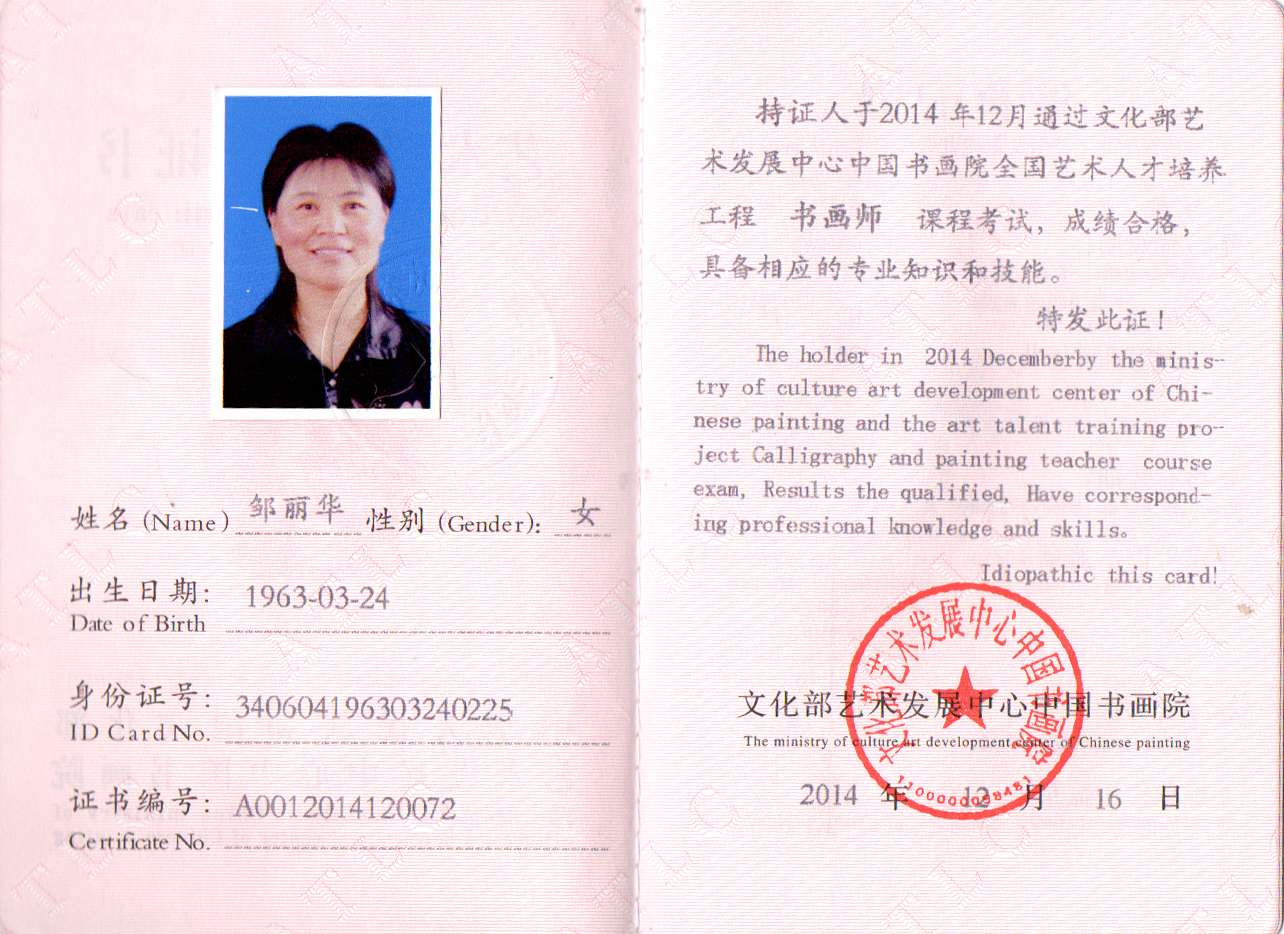 姓名 (Name) 邹丽华 性别 (Gender): 女
出生日期: 1963-03-24
Date of Birth
身份证号: 340604196303240225
ID Card No.
证书编号: A0012014120072
Certificate No.
持证人于2014 年12月通过文化部艺
术发展中心中国书画院全国艺术人才培养
工程 书画师 课程考试，成绩合格，
具备相应的专业知识和技能。
特发此证！
The holder in 2014 Decemberby the minis-
try of culture art development center of Chi-
nese painting and the art talent training pro-
ject Calligraphy and painting teacher course
exam, Results the qualified, Have correspond-
ing professional knowledge and skills。
Idiopathic this card!
文化部艺术发展中心中国书画院
文化部艺术发展中心中国书画院
The ministry of culture art development center of Chinese painting
2014 年 12 月 16 日